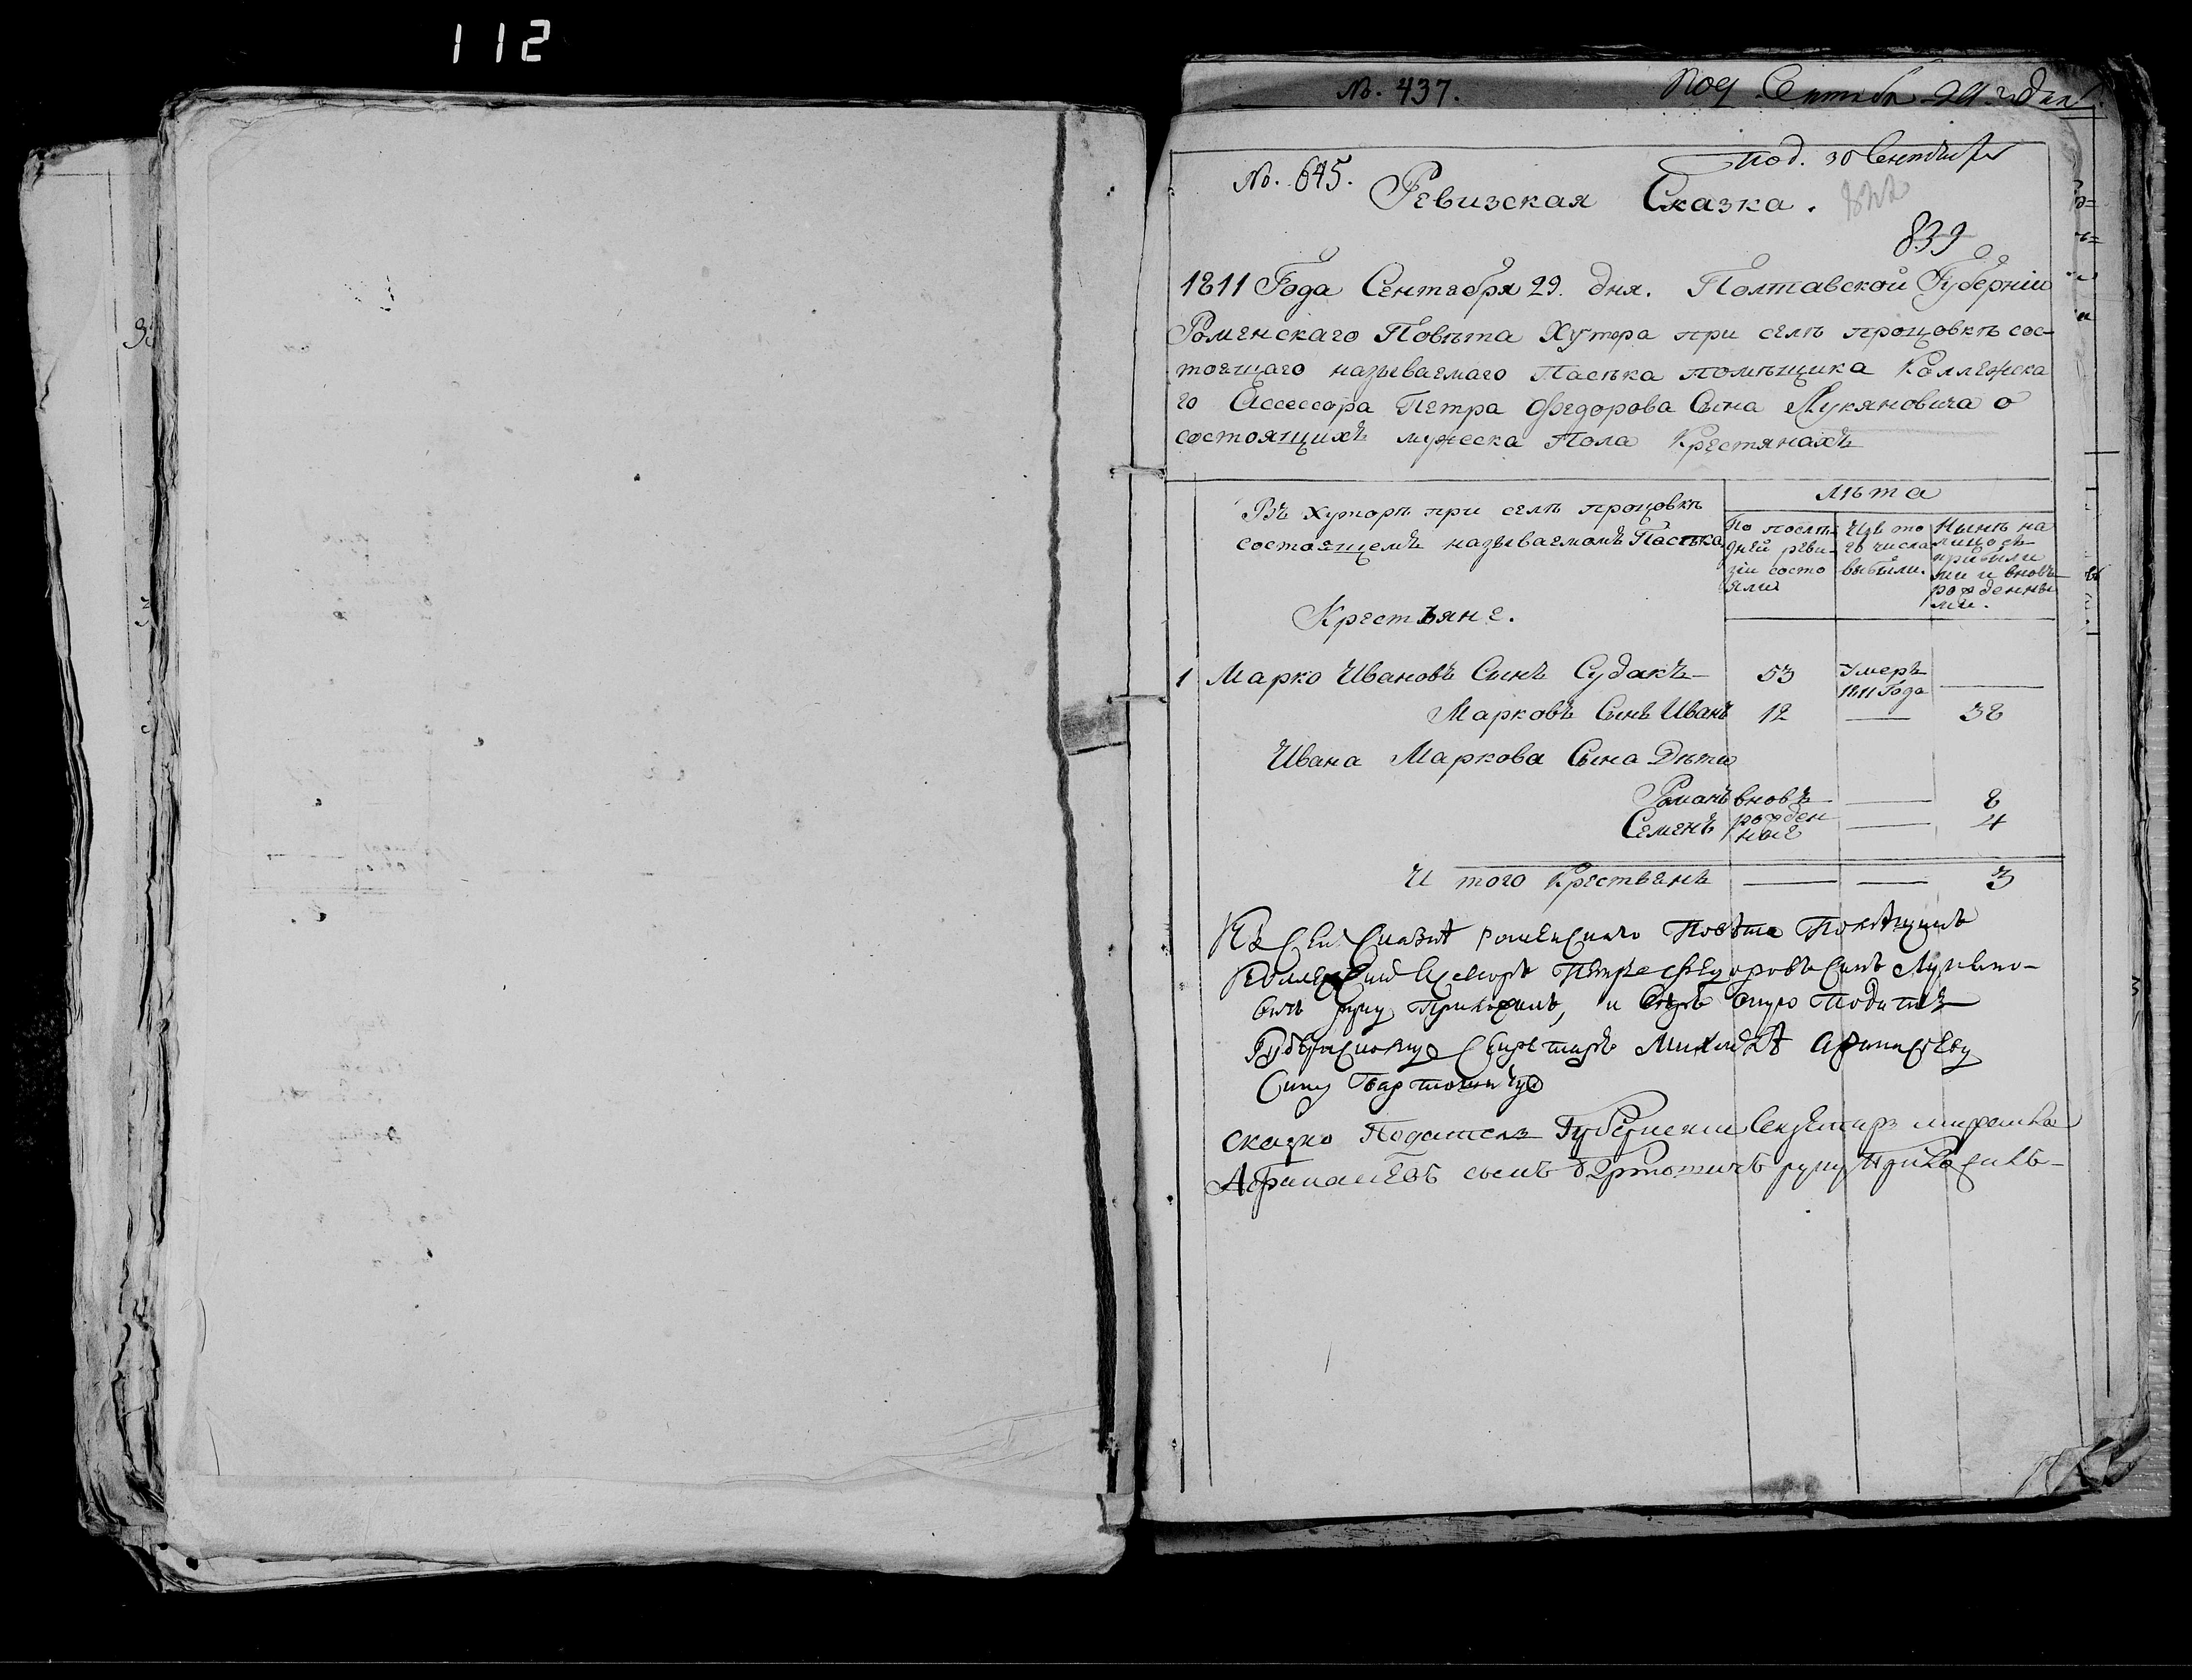 112
№. 437.
№. 645.
под. 30 Сентября
Ревизская Сказка.
839
1811 Года Сентября 29. дня. Полтавской Губернiи
Роменскаго Повѣта Хутора при селѣ процовкѣ сос-
тоящаго называемаго Пасѣка помѣщика Коллежска
го Ассессора Петра Федорова Сына Лукяновича о
состоящихъ мужеска Пола Крестянахъ
Лѣта
Въ хуторѣ при селѣ процовкѣ
состоящемъ называемомъ Пасѣка
По послѣ-
дней реви-
зiи состо
яли
Изъ то
го числа
выбыли.
Нынѣ на
лицо съ
прибылы
ми и вновь
рожденны
ми.
Крестьяне.
1 Марко Ивановъ Сынъ Судакъ 53 Умеръ 1811 Года —
Марковъ Сынъ Иванъ 12 — 38
Ивана Маркова Сына Дѣти
Романъ вновь — 8
Семенъ рожден ные — 4
И того Крестьянъ — — 3
Къ сей Сказкѣ роменскаго Повѣта Помѣщикъ
Коллежский Асесоръ Петръ Федоровъ Синъ Лукяно-
вичъ руку Приложилъ, и оную
Губернскому Секретарю
Сину Бартошичу
сказко Податель Губернски Секретарь
Афанасiевъ сынъ Бартошичъ руку Приложилъ